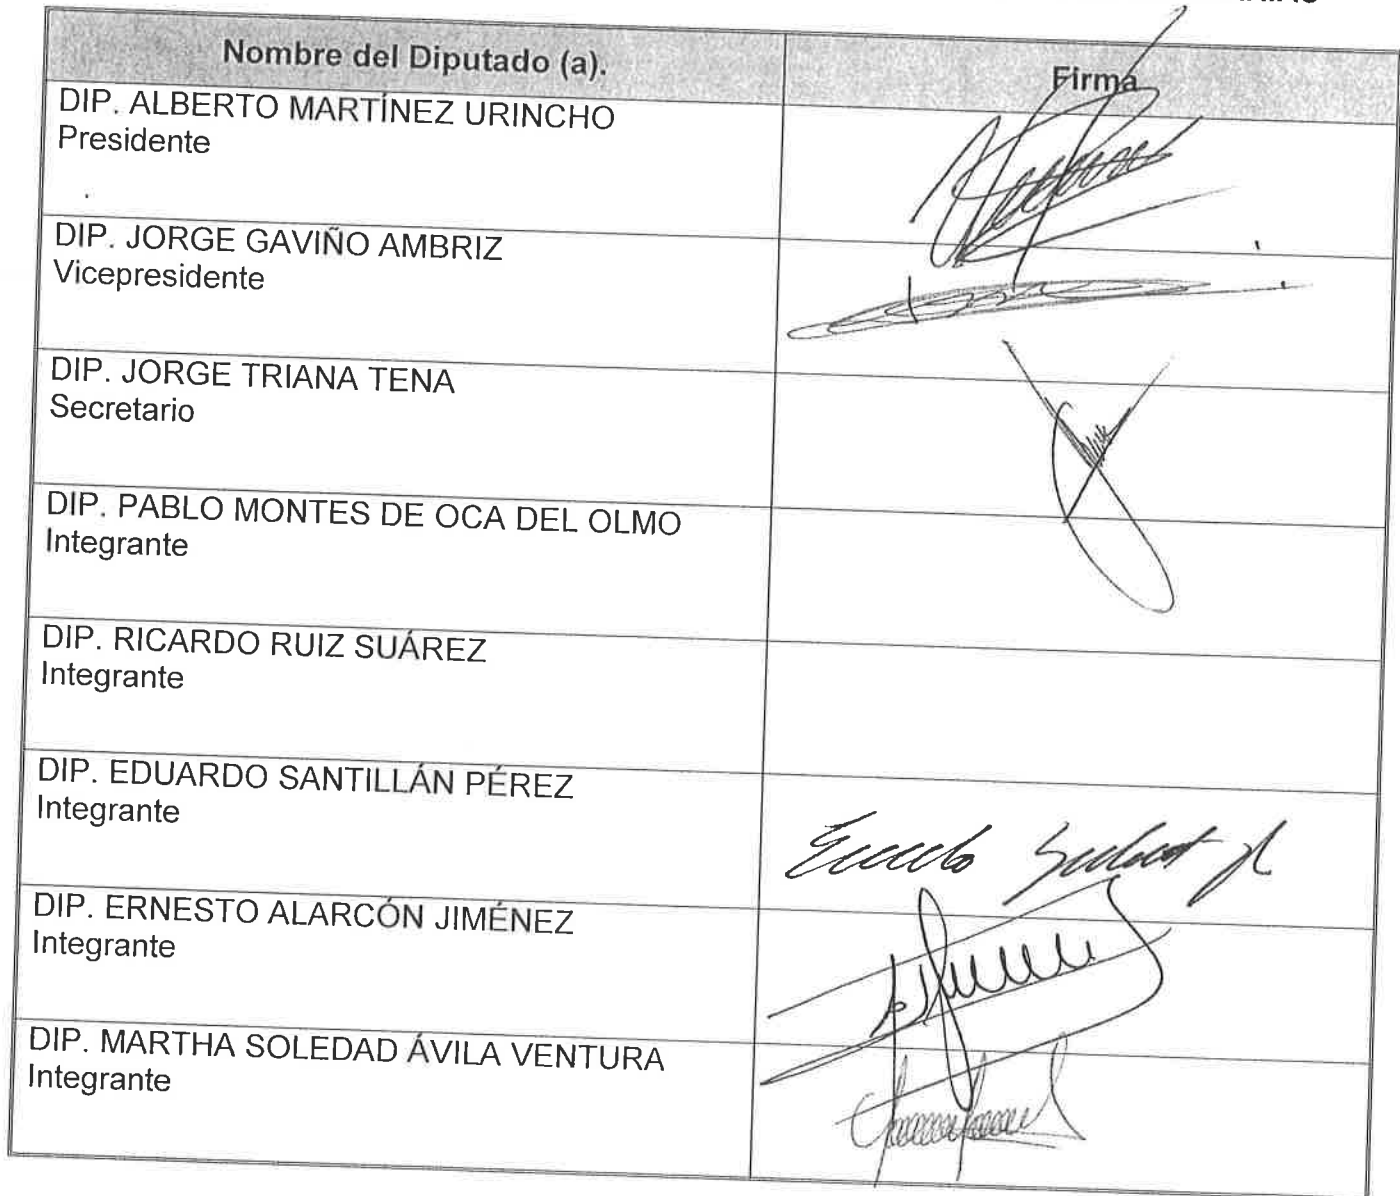 Nombre del Diputado (a).
Firma
DIP. ALBERTO MARTÍNEZ URINCHO
Presidente
DIP. JORGE GAVIÑO AMBRIZ
Vicepresidente
DIP. JORGE TRIANA TENA
Secretario
DIP. PABLO MONTES DE OCA DEL OLMO
Integrante
DIP. RICARDO RUIZ SUÁREZ
Integrante
DIP. EDUARDO SANTILLÁN PÉREZ
Integrante
DIP. ERNESTO ALARCÓN JIMÉNEZ
Integrante
DIP. MARTHA SOLEDAD ÁVILA VENTURA
Integrante